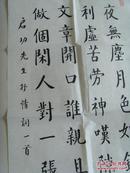 夜無塵月色如
利虛苦勞神嘆
文章開口誰親且
做個閑人對一張
启功先生抒情詞一首